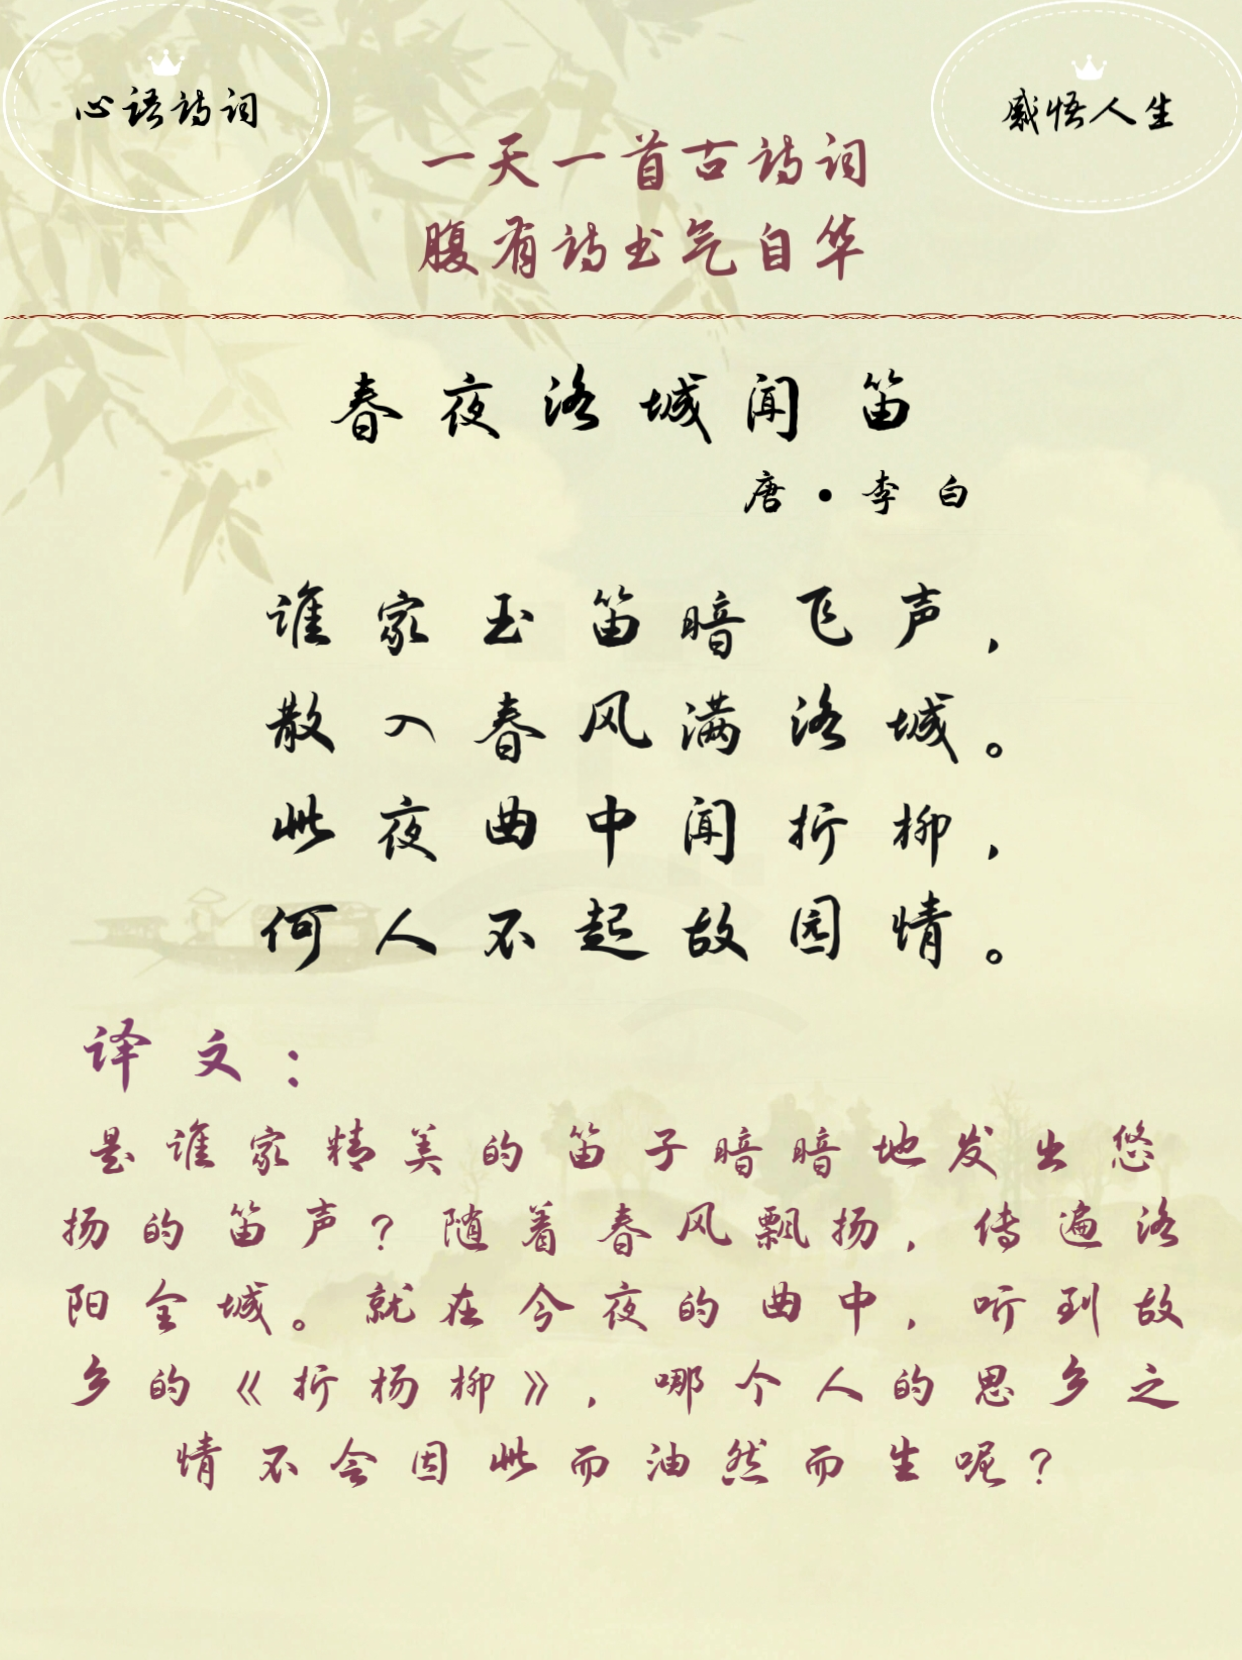 心语诗词
感悟人生
一天一首古诗词
腹有诗书气自华
春夜洛城闻笛
唐·李白
谁家玉笛暗飞声，
散入春风满洛城。
此夜曲中闻折柳，
何人不起故园情。
译文：
是谁家精美的笛子暗暗地发出悠
扬的笛声？随着春风飘扬，传遍洛
阳全城。就在今夜的曲中，听到故
乡的《折杨柳》，哪个人的思乡之
情不会因此而油然而生呢？